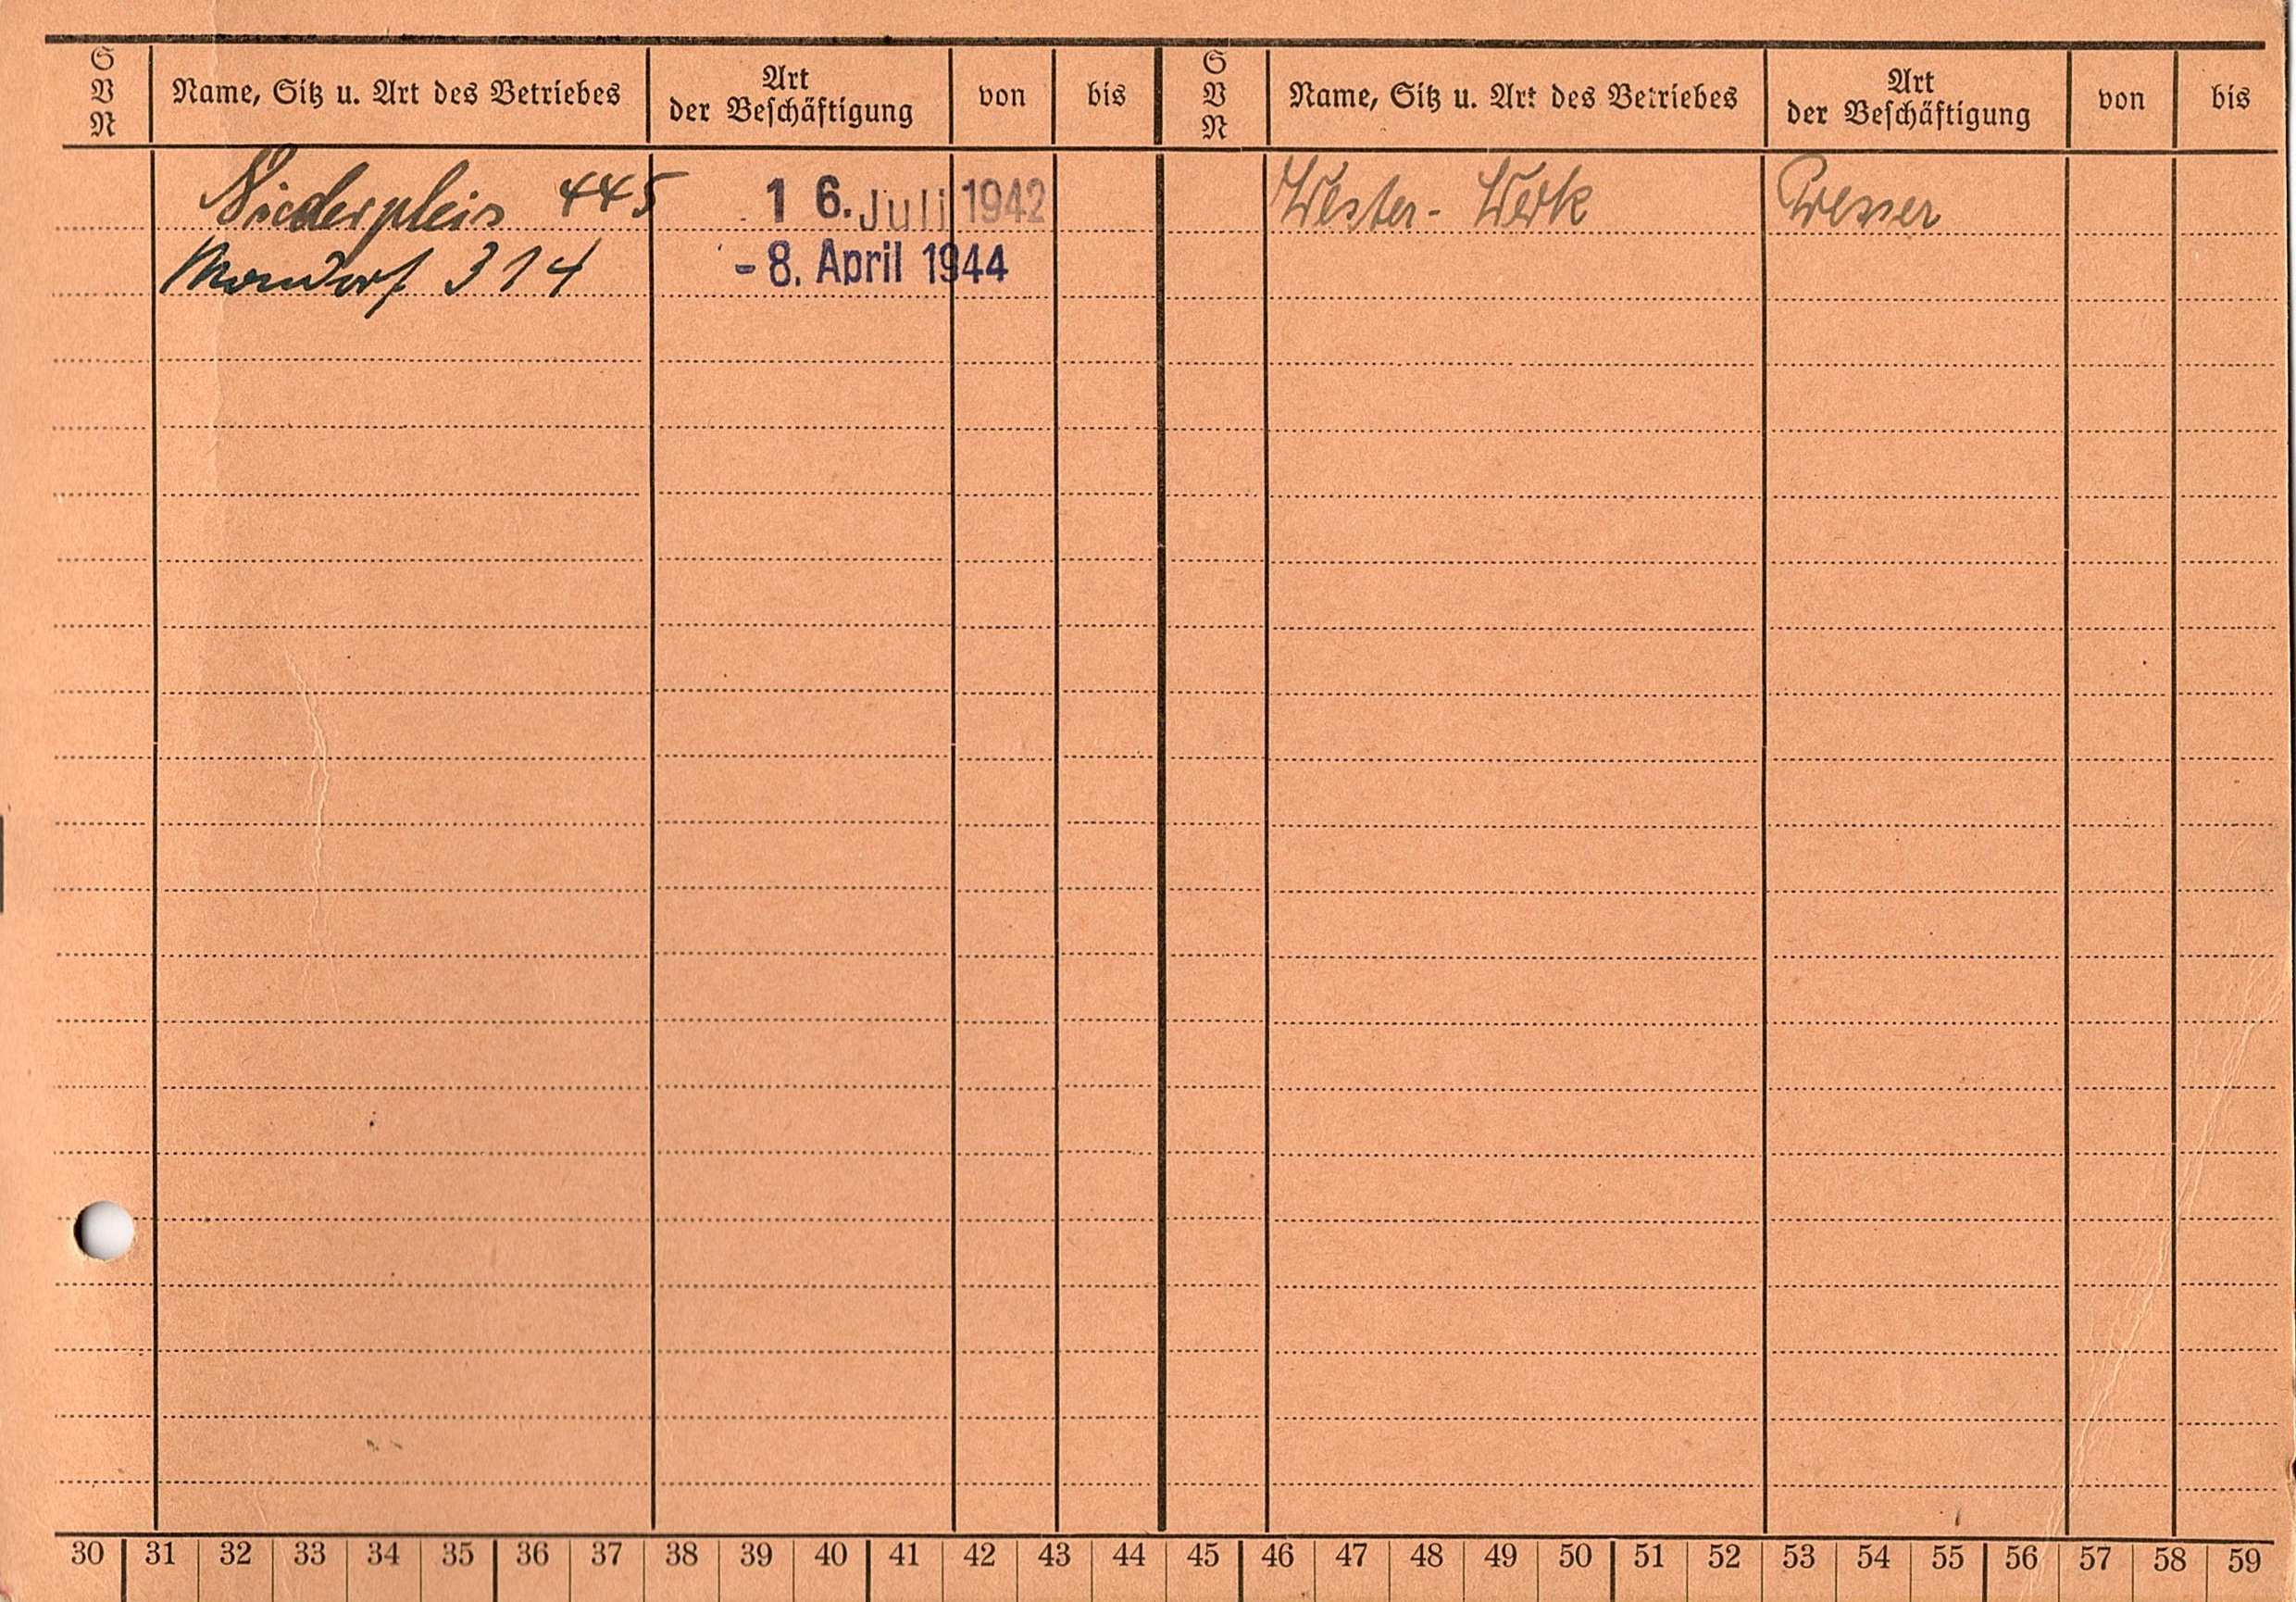 S
V
N
Name, Sitz u. Art des Betriebes
Art
der Beschäftigung
von
bis
S
V
N
Name, Sitz u. Art des Betriebes
Art
der Beschäftigung
von
bis
Niederpleis 445 16. Juli 1942
Mondorf 314 -8. April 1944
Wester-Werk
30 31 32 33 34 35 36 37 38 39 40 41 42 43 44 45 46 47 48 49 50 51 52 53 54 55 56 57 58 59